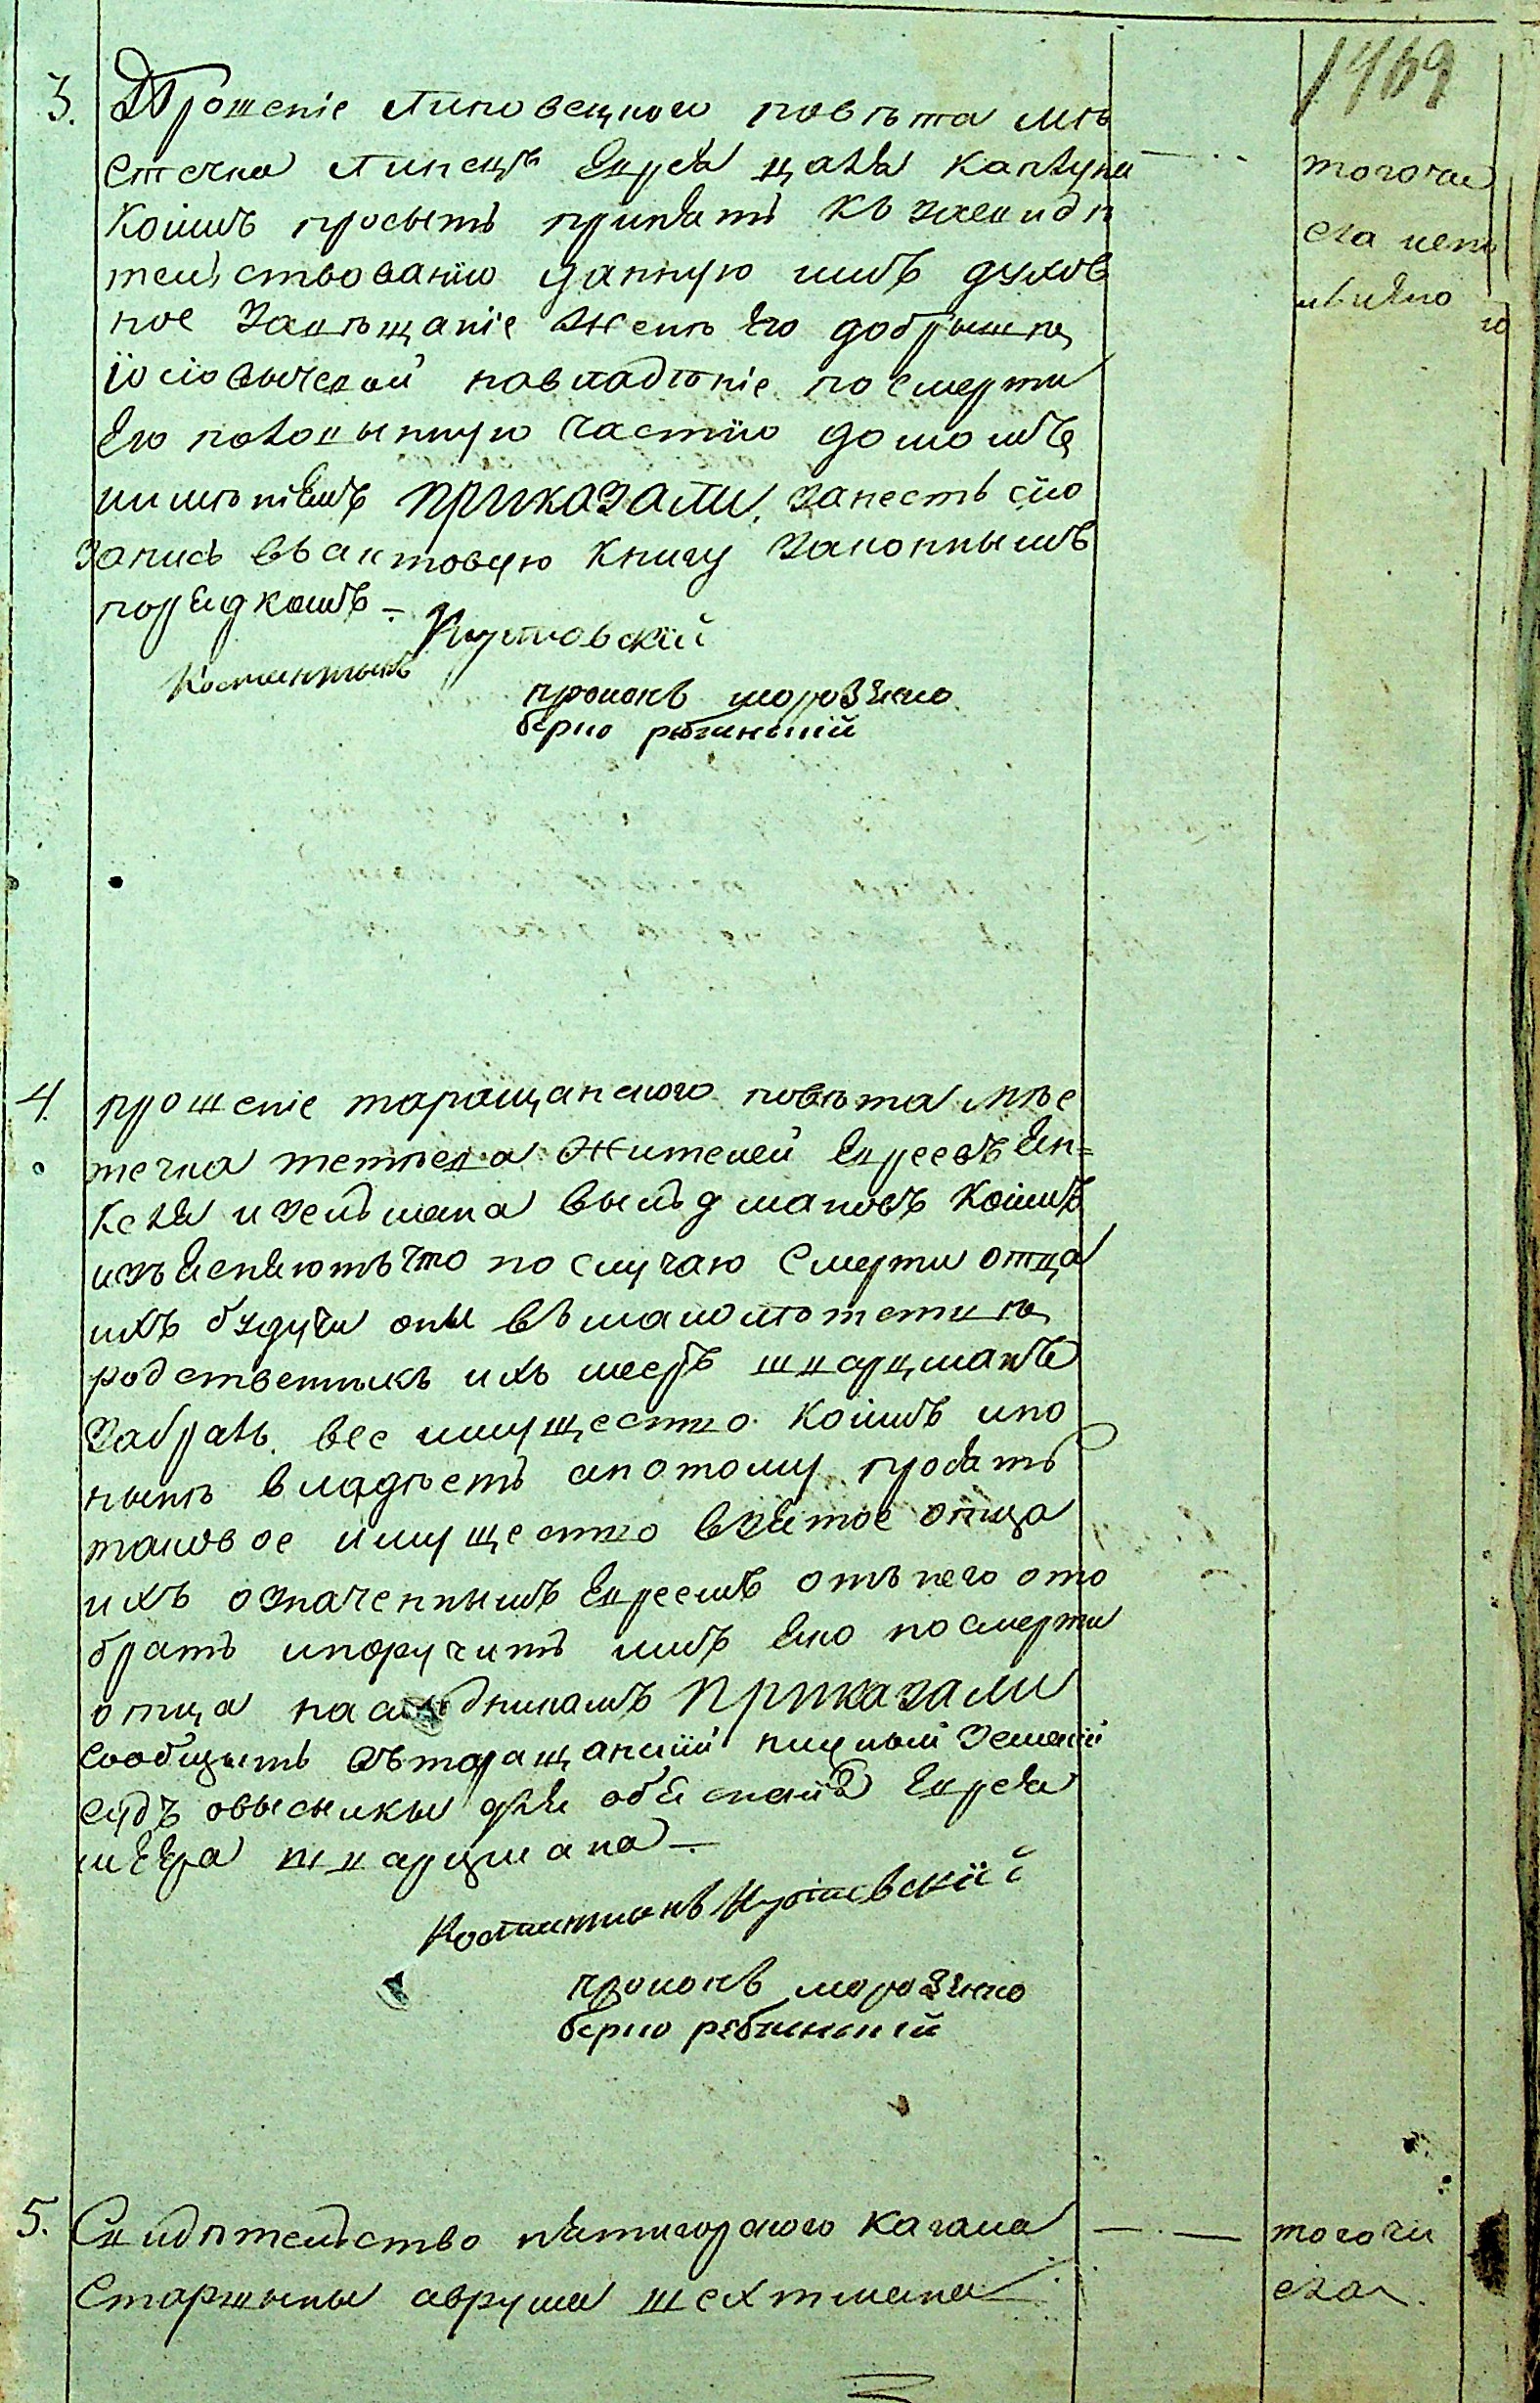 1469
3. Прошеніе липовецкого повѣта мѣ
стечка липецъ Еврея цаля каплуна
коимъ просытъ принять къ засвидѣ
тельствованію данную имъ духов
ное завѣщаніе Женѣ Его добрышѣ
іосіовычевой навладѣніе посмерти
Его половынную частію домомъ
именіемъ приказали, занесть сію
запись въ актовую книгу законнымъ
порядкомъ –
того чи
сла исп
Костантынъ Кутовскій
прокопъ морозенко
берко рабинскій
4. прошеніе таращанского повѣта мѣс
течка тетіева жителей Евреевъ Ян=
келя изельмана вындмановъ коимъ
изъясняютъ что послучаю смерти отца
ихъ будучи оны въ малолѣтствѣ
родственыкъ ихъ мееръ шварцманъ
забралъ все имущество коимъ ипо
нынѣ владѣетъ апотому просятъ
таковое имущество взятое отца
ихъ означеннымъ Евреемъ отънего ото
брать ипоручить имъ яко посмерти
отца наслѣдникамъ приказали
сообщыть въ таращанскій нижный земскій
судъ овысылкы для объясненія Еврея
меера шварцмана –
Костантынъ Кутовскій
прокопъ морозенко
берко рабинскій
5. Свидѣтельство пятигорского кагала
старшыны аврума шехтмана
того чи
сла